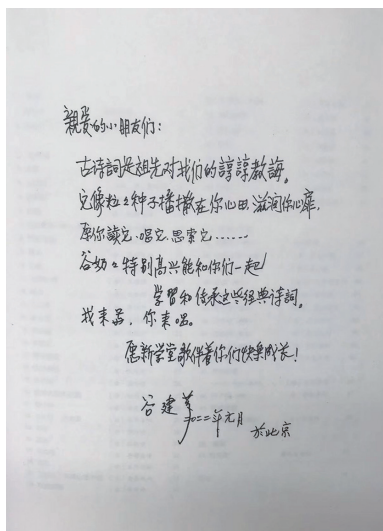 親爱的小朋友们：
古诗詞是祖先对我们的諄諄教誨。
它像粒々种子播撒在你心田，滋润你心扉，
愿你讀它、唱它、思索它……
谷奶々特别高兴能和你们一起
学習和传承这些经典诗詞。
我来品，你来唱。
愿新学堂歌伴着你们快樂成长！
谷建芬
二〇二二年元月
於北京